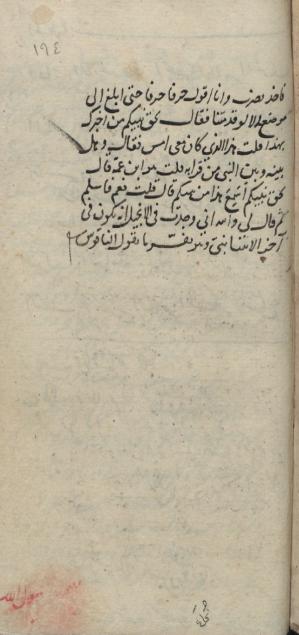 ١٩٤
فاخذ يضرب وانا اقول حرفا حرفا حتى ابلغ الى
موضع الا لو قد متنا فقال بحق نبيكم من اخبرك
بهذا قلت هذا الذي كان معي امس فقال وهل
بينه وبين النبي من قرابة قلت هو ابن عمه قال
بحق نبيكم أسمع هذا من نبيكم قال قلت نعم فاسلم
ثم قال لي والله اني وجدت في الانجيل انه يكون في
آخر الانبياء نبي وهو يفسر ما يقول الناقوس